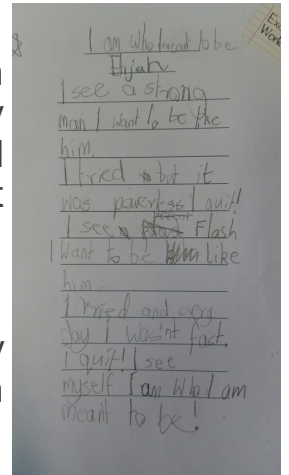 I am who I meant to be
Elijah
I see a strong
man I want to be the
him.
I tried but it
was powerless I quit!
I see Flash
I want to be like
him.
I tried and every
day I wasn't fast.
I quit! I see
myself I am who I am
meant to be!